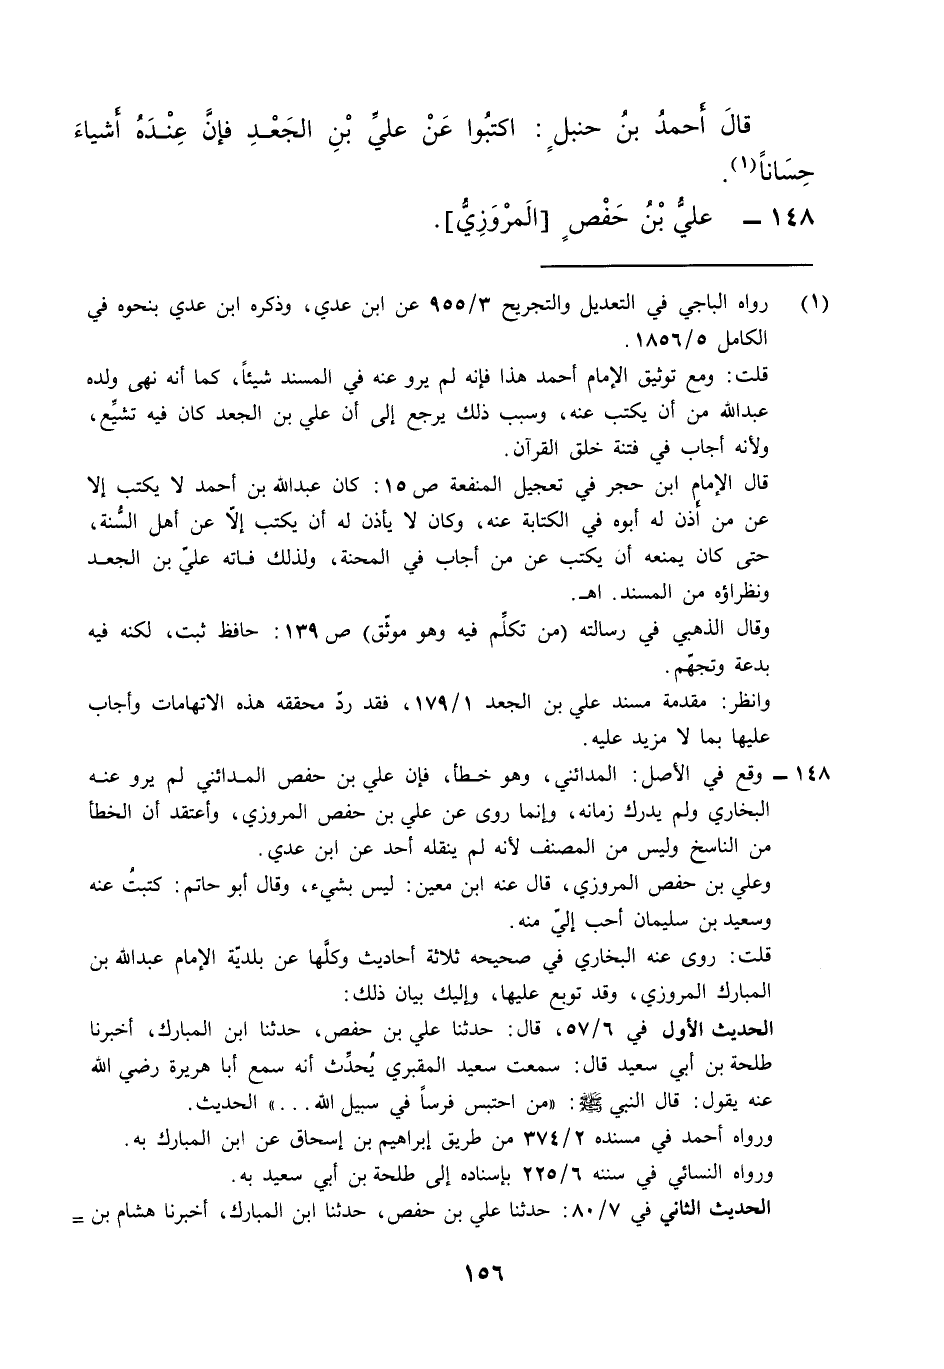 قالَ أَحمدُ بنُ حنبلٍ : اكتبُوا عَنْ عليِّ بْنِ الجَعْدِ فإنَّ عِنْدَهُ أَشياءَ
حِسَاناً(١).
١٤٨ – عليُّ بْنُ حَفْصٍ [المَرْوَزِيُّ].
(١) رواه الباجي في التعديل والتجريح ٩٥٥/٣ عن ابن عدي، وذكره ابن عدي بنحوه في
الكامل ١٨٥٦/٥.
قلت: ومع توثيق الإمام أحمد هذا فإنه لم يرو عنه في المسند شيئاً، كما أنه نهى ولده
عبدالله من أن يكتب عنه، وسبب ذلك يرجع إلى أن علي بن الجعد كان فيه تشيِّع،
ولأنه أجاب في فتنة خلق القرآن.
قال الإمام ابن حجر في تعجيل المنفعة ص ١٥: كان عبدالله بن أحمد لا يكتب إلا
عن من أَذن له أبوه في الكتابة عنه، وكان لا يأذن له أن يكتب إلاّ عن أهل السُّنة،
حتى كان يمنعه أن يكتب عن من أجاب في المحنة، ولذلك فاته عليّ بن الجعد
ونظراؤه من المسند. اهـ.
وقال الذهبي في رسالته (من تكلِّم فيه وهو موثّق) ص ١٣٩: حافظ ثبت، لكنه فيه
بدعة وتجهّم.
وانظر: مقدمة مسند علي بن الجعد ١٧٩/١، فقد ردّ محققه هذه الاتهامات وأجاب
عليها بما لا مزيد عليه.
١٤٨ – وقع في الأصل: المدائني، وهو خطأ، فإن علي بن حفص المدائني لم يرو عنه
البخاري ولم يدرك زمانه، وإنما روى عن علي بن حفص المروزي، وأعتقد أن الخطأ
من الناسخ وليس من المصنف لأنه لم ينقله أحد عن ابن عدي.
وعلي بن حفص المروزي، قال عنه ابن معين: ليس بشيء، وقال أبو حاتم: كتبتُ عنه
وسعيد بن سليمان أحب إليّ منه.
قلت: روى عنه البخاري في صحيحه ثلاثة أحاديث وكلَّها عن بلديّة الإمام عبدالله بن
المبارك المروزي، وقد توبع عليها، وإليك بيان ذلك:
الحديث الأول في ٥٧/٦، قال: حدثنا علي بن حفص، حدثنا ابن المبارك، أخبرنا
طلحة بن أبي سعيد قال: سمعت سعيد المقبري يُحدِّث أنه سمع أبا هريرة رضي الله
عنه يقول: قال النبي ﷺ: «من احتبس فرساً في سبيل الله...» الحديث.
ورواه أحمد في مسنده ٣٧٤/٢ من طريق إبراهيم بن إسحاق عن ابن المبارك به.
ورواه النسائي في سننه ٢٢٥/٦ بإسناده إلى طلحة بن أبي سعيد به.
الحديث الثاني في ٨٠/٧: حدثنا علي بن حفص، حدثنا ابن المبارك، أخبرنا هشام بن =
١٥٦